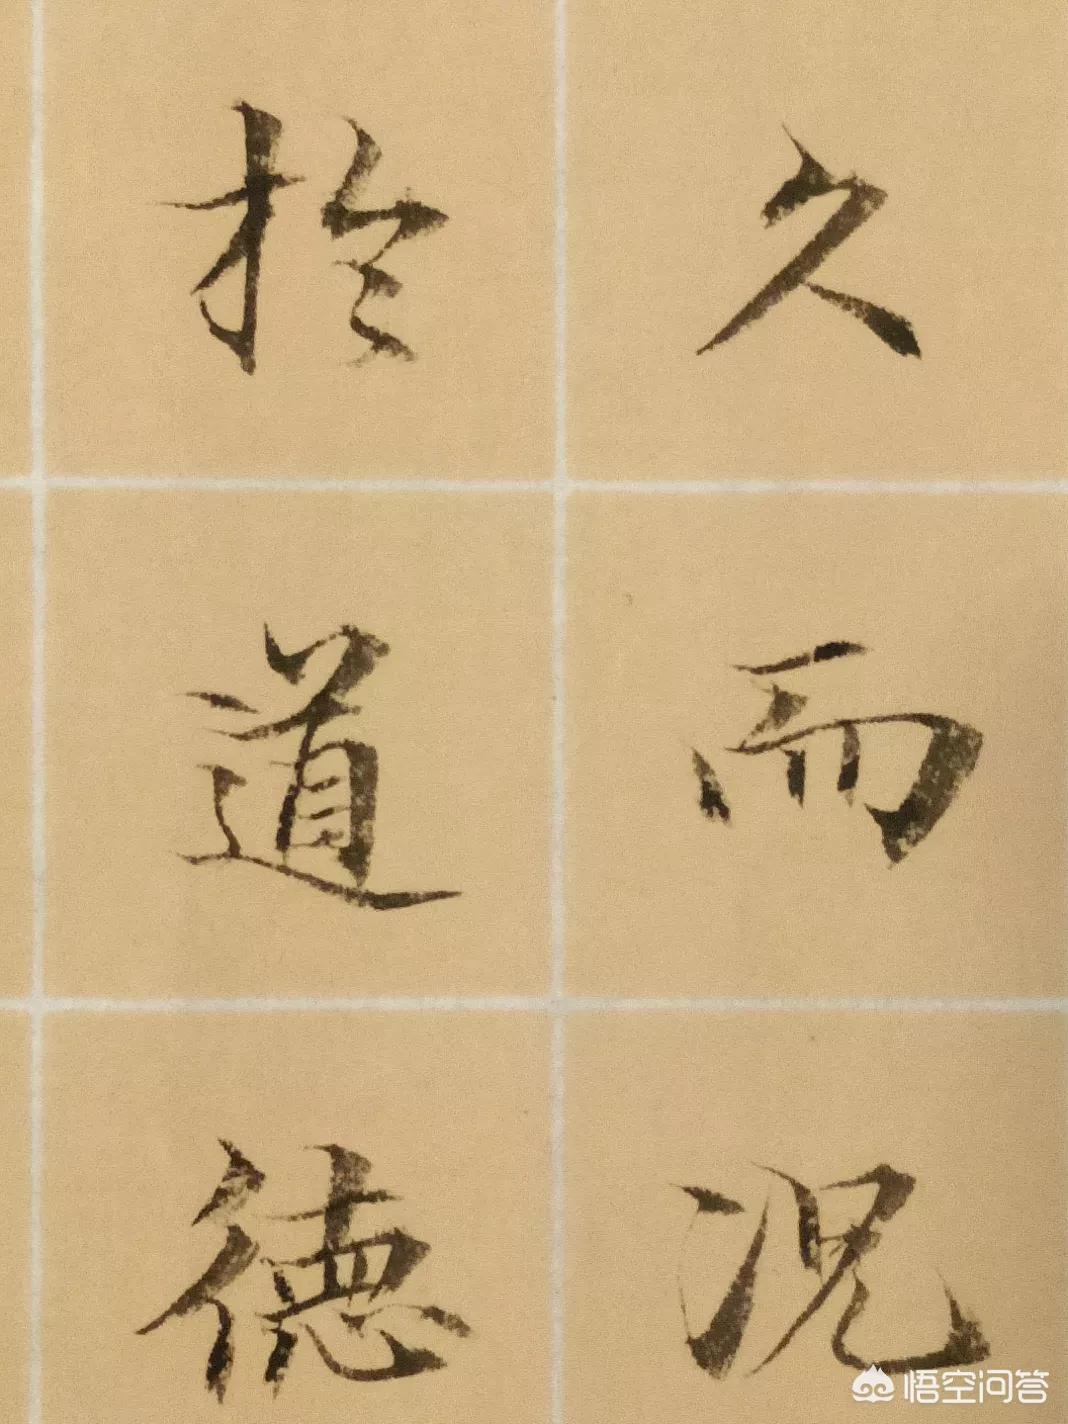 久而况
於道德
悟空问答